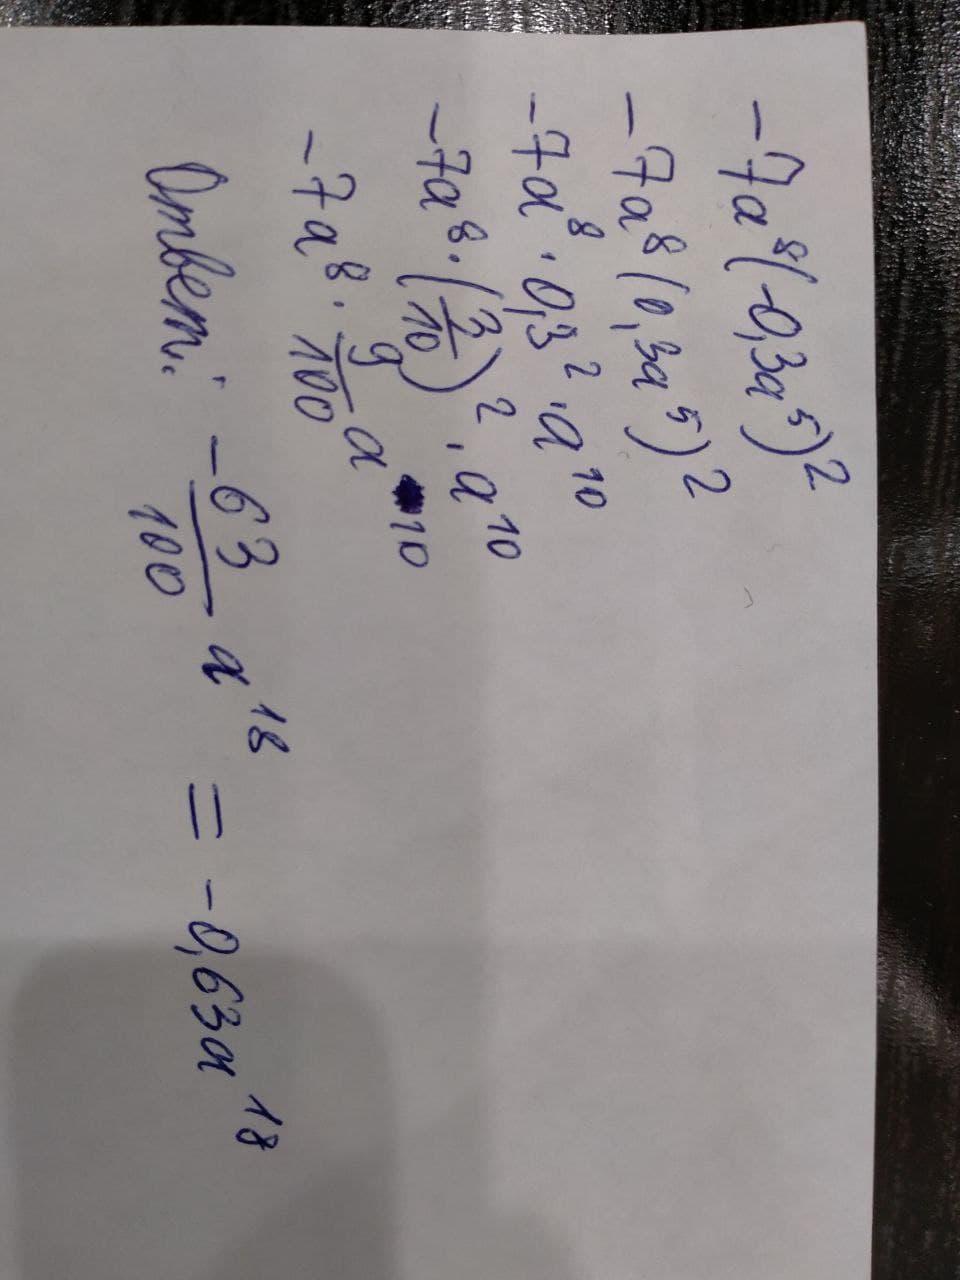 -7a⁸(-0,3a⁵)²
-7a⁸(0,3a⁵)²
-7a⁸·0,3²·a¹⁰
-7a⁸·(3/10)²·a¹⁰
-7a⁸·9/100 a¹⁰
Ответ: -63/100 a¹⁸ = -0,63a¹⁸